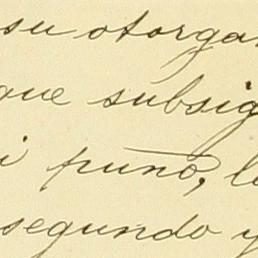 su otorga
que subsig
i puño, l
segundo y